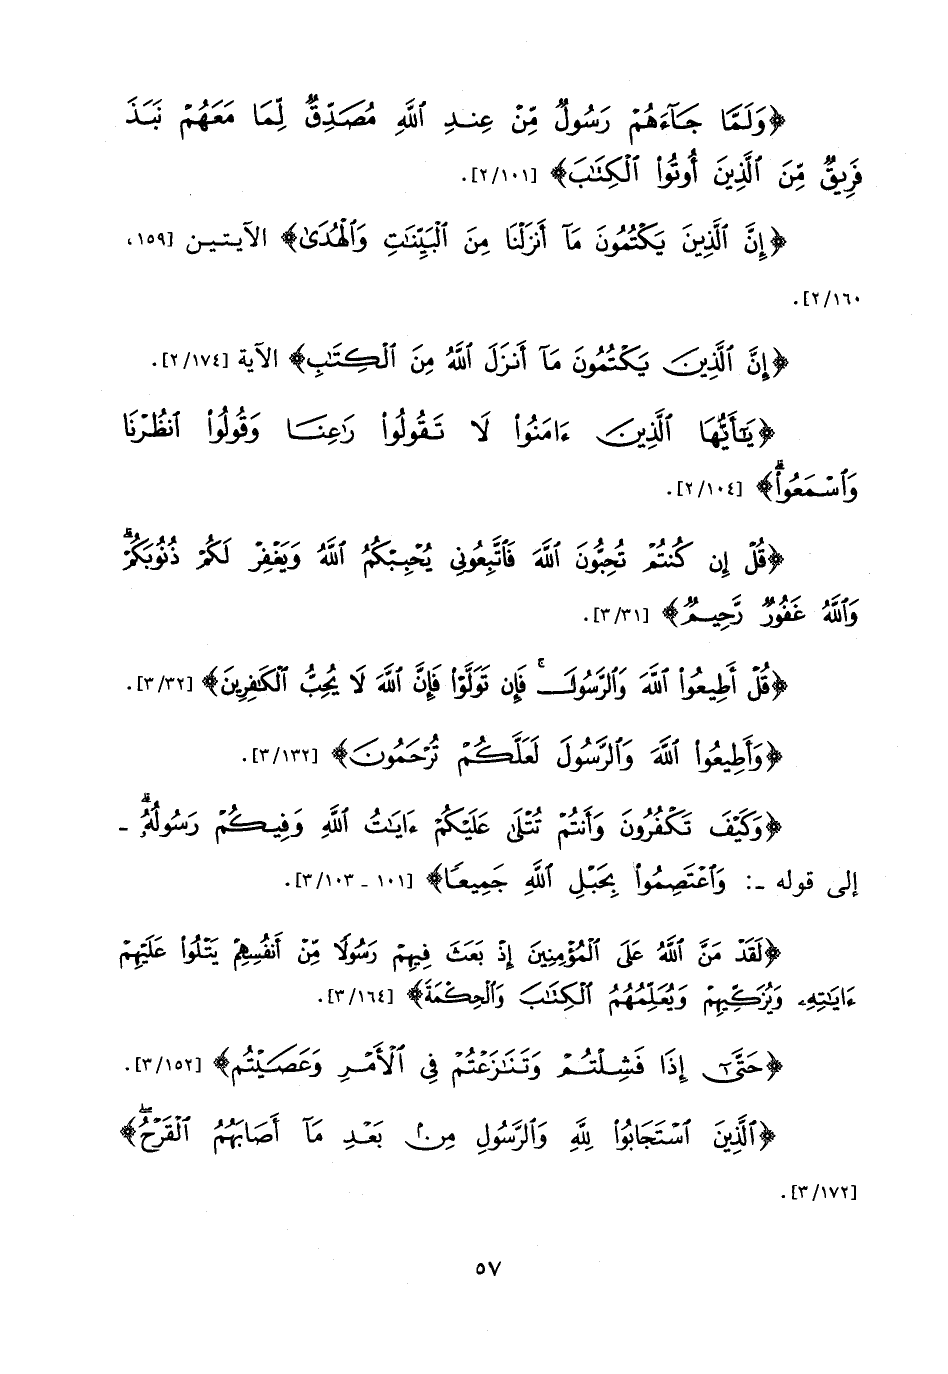 ﴿وَلَمَّا جَآءَهُمْ رَسُولٌ مِّنْ عِندِ ٱللَّهِ مُصَدِّقٌ لِّمَا مَعَهُمْ نَبَذَ
فَرِيقٌ مِّنَ ٱلَّذِينَ أُوتُوا۟ ٱلْكِتَٰبَ﴾ [٢/١٠١].
﴿إِنَّ ٱلَّذِينَ يَكْتُمُونَ مَآ أَنزَلْنَا مِنَ ٱلْبَيِّنَٰتِ وَٱلْهُدَىٰ﴾ الآيتين [١٥٩،
٢/١٦٠].
﴿إِنَّ ٱلَّذِينَ يَكْتُمُونَ مَآ أَنزَلَ ٱللَّهُ مِنَ ٱلْكِتَٰبِ﴾ الآية [٢/١٧٤].
﴿يَٰٓأَيُّهَا ٱلَّذِينَ ءَامَنُوا۟ لَا تَقُولُوا۟ رَٰعِنَا وَقُولُوا۟ ٱنظُرْنَا
وَٱسْمَعُوا۟ۗ﴾ [٢/١٠٤].
﴿قُلْ إِن كُنتُمْ تُحِبُّونَ ٱللَّهَ فَٱتَّبِعُونِى يُحْبِبْكُمُ ٱللَّهُ وَيَغْفِرْ لَكُمْ ذُنُوبَكُمْۗ
وَٱللَّهُ غَفُورٌ رَّحِيمٌ﴾ [٣/٣١].
﴿قُلْ أَطِيعُوا۟ ٱللَّهَ وَٱلرَّسُولَۖ فَإِن تَوَلَّوْا۟ فَإِنَّ ٱللَّهَ لَا يُحِبُّ ٱلْكَٰفِرِينَ﴾ [٣/٣٢].
﴿وَأَطِيعُوا۟ ٱللَّهَ وَٱلرَّسُولَ لَعَلَّكُمْ تُرْحَمُونَ﴾ [٣/١٣٢].
﴿وَكَيْفَ تَكْفُرُونَ وَأَنتُمْ تُتْلَىٰ عَلَيْكُمْ ءَايَٰتُ ٱللَّهِ وَفِيكُمْ رَسُولُهُۥۗ ـ
إلى قوله ـ: وَٱعْتَصِمُوا۟ بِحَبْلِ ٱللَّهِ جَمِيعًا﴾ [١٠١ ـ ٣/١٠٣].
﴿لَقَدْ مَنَّ ٱللَّهُ عَلَى ٱلْمُؤْمِنِينَ إِذْ بَعَثَ فِيهِمْ رَسُولًا مِّنْ أَنفُسِهِمْ يَتْلُوا۟ عَلَيْهِمْ
ءَايَٰتِهِۦ وَيُزَكِّيهِمْ وَيُعَلِّمُهُمُ ٱلْكِتَٰبَ وَٱلْحِكْمَةَ﴾ [٣/١٦٤].
﴿حَتَّىٰٓ إِذَا فَشِلْتُمْ وَتَنَٰزَعْتُمْ فِى ٱلْأَمْرِ وَعَصَيْتُم﴾ [٣/١٥٢].
﴿ٱلَّذِينَ ٱسْتَجَابُوا۟ لِلَّهِ وَٱلرَّسُولِ مِنۢ بَعْدِ مَآ أَصَابَهُمُ ٱلْقَرْحُۖ﴾
[٣/١٧٢].
٥٧